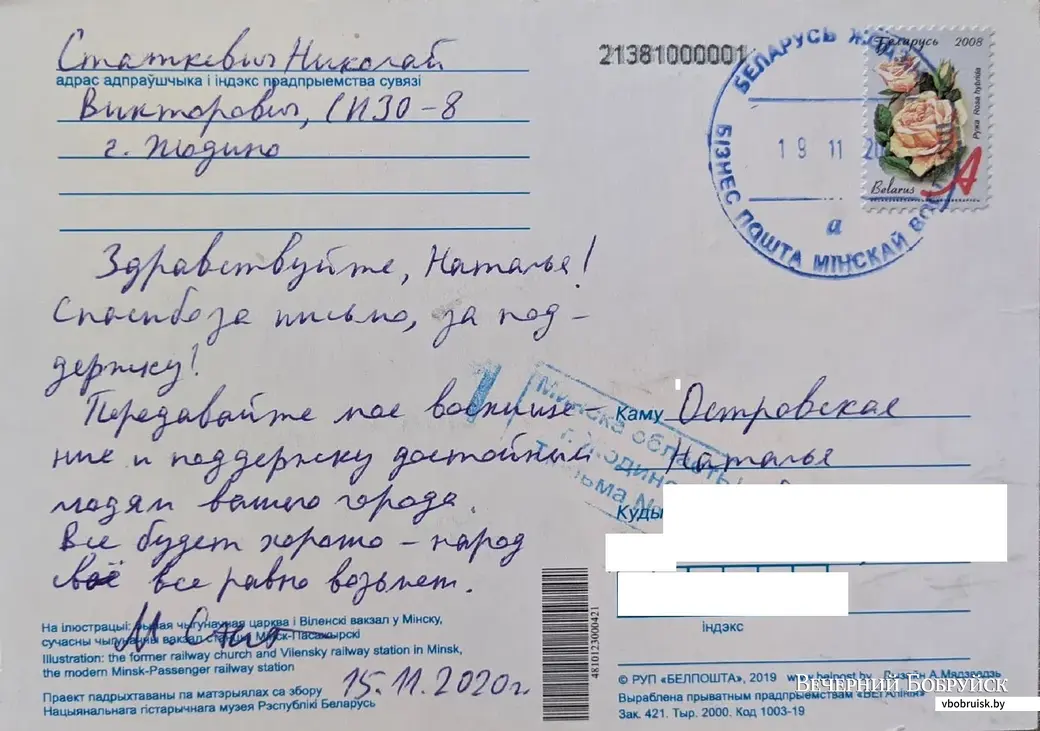 Статкевич Николай
адрас адпраўшчыка і індэкс прадпрыемства сувязі
Викторович, СИЗО-8
г. Жодино
Здравствуйте, Наталья!
Спасибо за письмо, за под-
держку!
Передавайте мое восхище-
ние и поддержку достойным
людям вашего города.
Все будет хорошо - народ
своё все равно возьмет.
15.11.2020г.
На ілюстрацыі: былая чыгуначная царква і Віленскі вакзал у Мінску,
сучасны чыгуначны вакзал станцыі Мінск-Пасажырскі
Illustration: the former railway church and Vilensky railway station in Minsk,
the modern Minsk-Passenger railway station
Праект падрыхтаваны па матэрыялах са збору
Нацыянальнага гістарычнага музея Рэспублікі Беларусь
21381000001
БЕЛАРУСЬ
БІЗНЕС ПОШТА МІНСКАЙ
19 11 20
а
Беларусь 2008
Ружа Rosa hybrida
Belarus
А
Минска области
г. Жодино
Каму Островская
Наталья
Куды
індэкс
4810123000421
© РУП «БЕЛПОШТА», 2019 www.belpost.by Дызайн А.Мядзведзь
Выраблена прыватным прадпрыемствам
Зак. 421. Тыр. 2000. Код 1003-19
ВЕЧЕРНИЙ БОБРУЙСК
vbobruisk.by